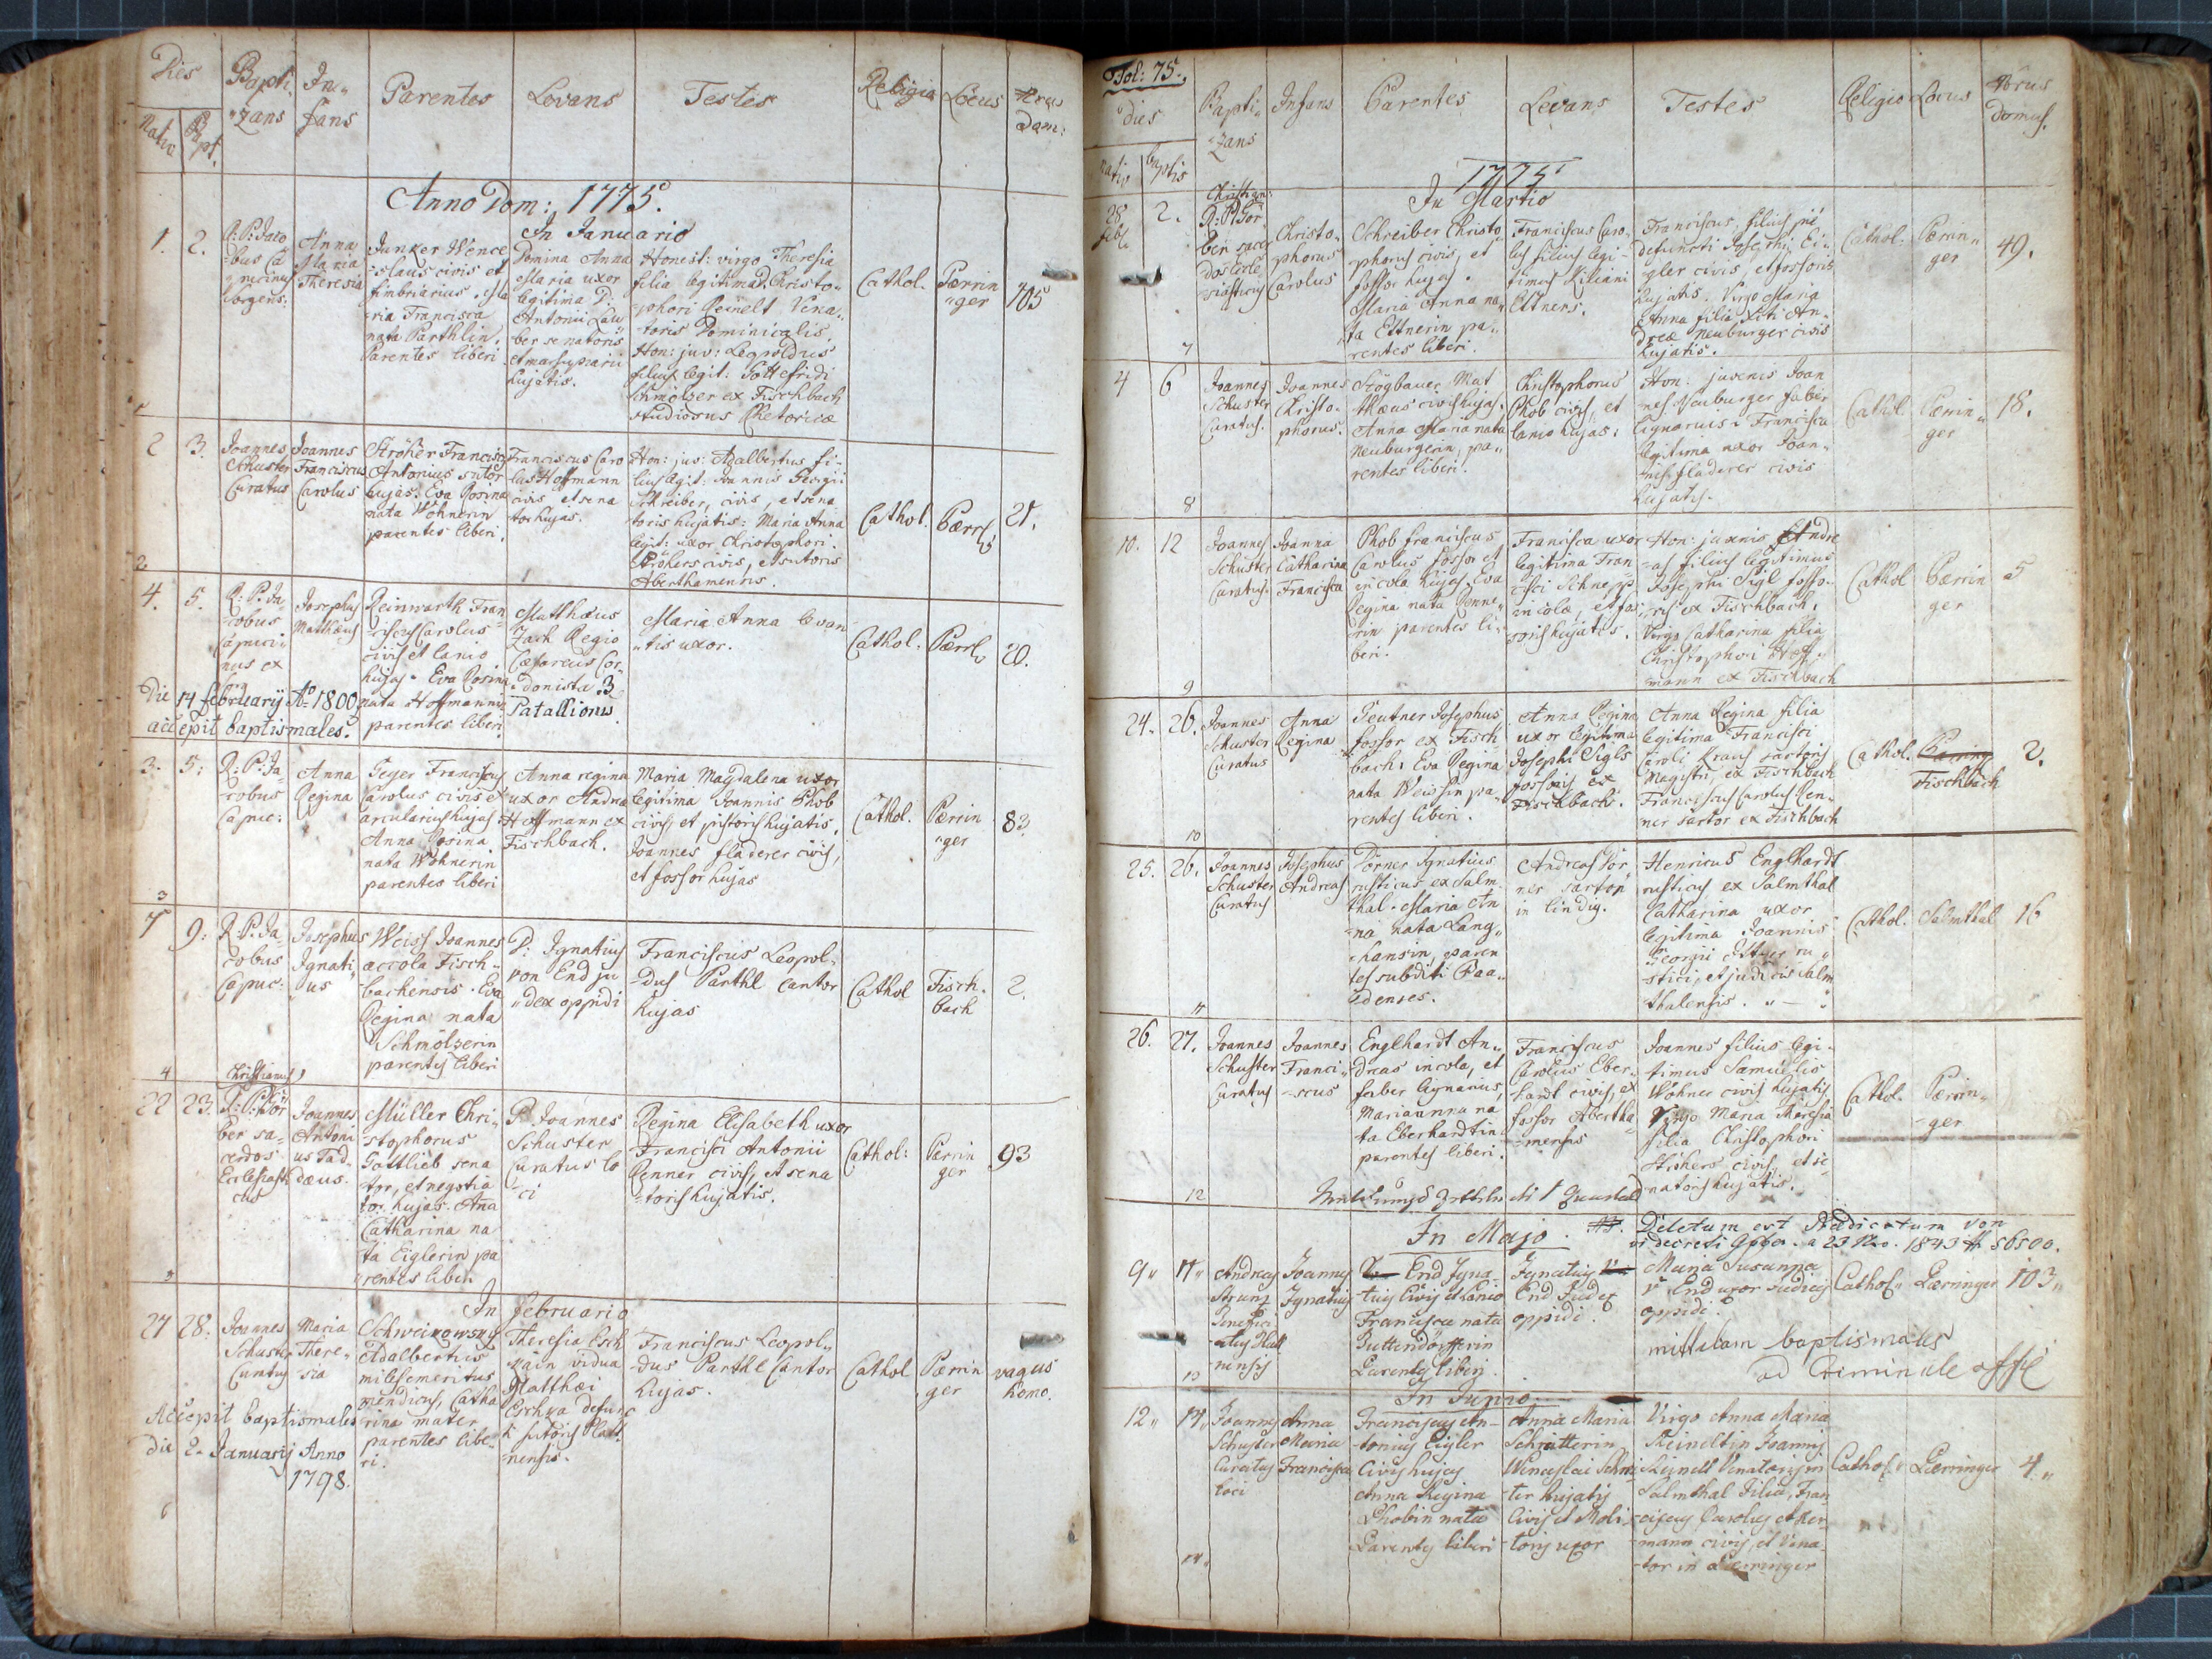 Dies
Nativ
Bapt.
Bapti
zans
In-
fans
Parentes
Levans
Testes
Religio
Locus
Nrus
dom:
Anno Dom: 1775.
In Januario
1.
2.
R: P: Jaco
bus Ca
Anna
Maria
Theresia
Junker Wence
slaus civis et
fimbriarius. Ma
ria Francisca
nata Parthlin.
Parentes liberi
Domina Anna
Maria uxor
legitima D:
Antonii Lau
ber senatoris
et marsupiarii
hujatis.
Honest: virgo Theresia
filia legitima D. Christo-
phori Reinelt Vena-
toris Dominicalis,
Hon: juv: Leopoldus
filius legit: Gottefridi
Schmölzer ex Fischbach
studiosus Rhetoricæ
Cathol.
Pærrin
ger
105
2
3.
Joannes
Schuster
Curatus
Joannes
Franciscus
Carolus
Ströher Francisc
Antonius sutor
hujas. Eva Rosina
nata Wöhnerin
parentes liberi.
Franciscus Caro
lus Hoffmann
civis et sena
tor hujas.
Hon: juv: Adalbertus fi-
lius legit: Joannis Georgii
Schreiber, civis, et sena
toris hujatis: Maria Anna
legit: uxor Christophori
Ströhers civis, et sutoris
Aberthamensis.
Cathol.
Pærr
21.
2
4.
5.
R: P: Ja-
cobus
Capuci
nus ex
Josephus
Matthæus
Reinwarth Fran
ciscus Carolus
civis et lanio
hujas. Eva Rosina
nata Hoffmannin
parentes liberi
Matthæus
Zach Regio
Cæsareus Cor
donista 3
Patallionis
Maria Anna levan
tis uxor.
Cathol.
Pærr
20.
Die 14 februarij Ao 1800
accepit baptismales.
3.
5:
R: P: Ja-
cobus
Capuc:
Anna
Regina
Geyer Franciscus
Carolus civis et
arcularius hujas
Anna Rosina
nata Wöhnerin
parentes liberi
Anna regina
uxor Andreæ
Hoffmann ex
Fischbach.
Maria Magdalena uxor
legitima Joannis Phob
civis et pistoris hujatis.
Joannes fladerer civis,
et fossor hujas
Cathol.
Pærrin
ger
83.
3
7
9:
R: P: Ja-
cobus
Capuc:
Josephus
Ignati
us
Weiss Joannes
accola Fisch-
bachensis. Eva
Regina nata
Schmölzerin
parentes liberi
D: Ignatius
von End ju
dex oppidi
Franciscus Leopol-
dus Parthl Cantor
hujas
Cathol
Fisch-
bach
2.
4
Christianus
22
23.
R: P: Kör
ber sa-
cerdos
Ecclesiasti
cus
Joannes
Antoni
us Tad-
dæus.
Müller Chri-
stophorus
Gottlieb sena
tor, et negotia
tor hujas. Ana
Catharina na
ta Eiglerin pa
rentes liberi
P. Joannes
Schuster
Curatus lo
ci
Regina Elisabeth uxor
Francisci Antonii
Renner civis, et sena
toris hujatis.
Cathol:
Pærrin
ger
93
In februario
27
28.
Joannes
Schuster
Curatus
Maria
There-
sia
Schweikowsky
Adalbertus
miles emeritus
mendicus, Catha
rina mater
parentes libe-
ri.
Theresia Esch
vidua
Matthæi
defunc
ti sutoris Platt
nensis.
Franciscus Leopol-
dus Parthl Cantor
hujas.
Cathol
Pærrin
ger
vagus
homo.
Accepit baptismales
die 2. Januarij Anno
1798.
Fol: 75.
Dies
Nativ
baptis
Bapti-
zans
Infans
Parentes
Levans
Testes
Religio
Locus
Nrus
domus.
1775
In Martio
28
feb:
2.
Christian:
R: P: Kör
ber sacer
dos Eccle
siasticus
Christo-
phorus
Carolus
Schreiber Christo
phorus civis, et
fossor hujas.
Maria Anna na-
ta Eltnerin pa-
rentes liberi.
Franciscus Caro-
lus filius legi-
timus Kiliani
Eltners.
Franciscus, filius pie
defuncti Josephi Ei-
gler civis, et fossoris
hujatis. Virgo Maria
Anna filia An-
dreæ Neuburger civis
hujatis.
Cathol:
Pærin-
ger
49.
7
4
6
Joannes
Schuster
Curatus.
Joannes
Christo-
phorus.
Stögbauer Mat
thæus civis hujas.
Anna Maria nata
Neuburgerin, pa-
rentes liberi.
Christophorus
Phob civis, et
lanio hujas:
Hon: juvenis Joan
nes Neuburger faber
lignarius: Francisca
legitima uxor Joan-
nis fladerer civis
hujatis.
Cathol.
Pærrin-
ger
18.
8
10.
12
Joannes
Schuster
Curatus.
Joanna
Catharina
Francisca
Phob franciscus
Carolus fossor et
incola hujas. Eva
Regina nata Renne-
rin parentes li-
beri.
Francisca uxor
legitima Fran
cisci Schnepp
incolæ, et fos
soris hujatis.
Hon: juvenis Andre
as filius legitimus
Josephi Sigl fosso-
ris ex Fischbach.
Virgo Catharina filia
Christophori Hoff-
mann ex Fischbach
Cathol
Pærrin
ger
5
9
24.
26.
Joannes
Schuster
Curatus
Anna
Regina
Teutner Josephus
fossor ex Fisch
bach: Eva Regina
nata Weissin pa-
rentes liberi.
Anna Regina
uxor legitima
Josephi Sigls
fossoris ex
Fischbach.
Anna Regina filia
legitima Francisci
Caroli Kraus sartoris
Magistri, ex Fischbach
Franciscus Carolus Ren-
ner sartor ex Fischbach
Cathol.
Fischbach
2.
10
25.
26.
Joannes
Schuster
Curatus
Josephus
Andreas
Pörner Ignatius
rusticus ex Salm
thal. Maria An
na nata Lang-
hansin, paren
tes subditi Paa-
denses.
Andreas Pör
ner sartor
in lindig.
Henricus Englhardt
rusticus ex Salmthal
Catharina uxor
legitima Joannis
Georgii ru-
stici, et judicis Salm
thalensis.
Cathol.
Salmthal
16
11
26.
27.
Joannes
Schuster
Curatus
Joannes
Franci-
scus
Englhardt An-
dreas incola, et
faber lignarius,
Marianna na
ta Eberhardtin
parentes liberi.
Franciscus
Carolus Eber-
hardt civis, et
fossor Abertha-
mensis
Joannes filius legi-
timus Samuelis
Wöhner civis hujatis
Virgo Maria Theresia
filia Christophori
Ströhers civis, et se-
natoris hujatis.
Cathol.
Pærrin-
ger
12
In Majo.
NB. Deletum est Prædicatum von
vi decreti a 23 1843 # 56500.
9
11
Andreas
Joannes
Ignatius
End Igna-
tius Civis et Lanio
Francisca nata
Guttendörfferin
Parentes liberi.
Ignatius
End Judex
oppidi.
Maria Susanna
v End uxor Judicis
oppidi.
Cathol
Pærringer
103
mittatam baptismales
ad Criminale
13
In Junio
12
14
Joannes
Schuster
Curatus
loci
Anna
Maria
Francisca
Franciscus An-
tonius Eigler
Civis hujas
Anna Regina
Phobin nata
Parentes liberi
Anna Maria
Schrötterin
Wenceslai Schrö
ter hujatis
Civis et Moli-
toris uxor
Virgo Anna Maria
Reineltin Joannis
Reinelt Venatoris in
Salmthal Filia, Fran-
ciscus Carolus
mann civis, et Vena-
tor in Pærringer
Cathol
Pærringer
4
14